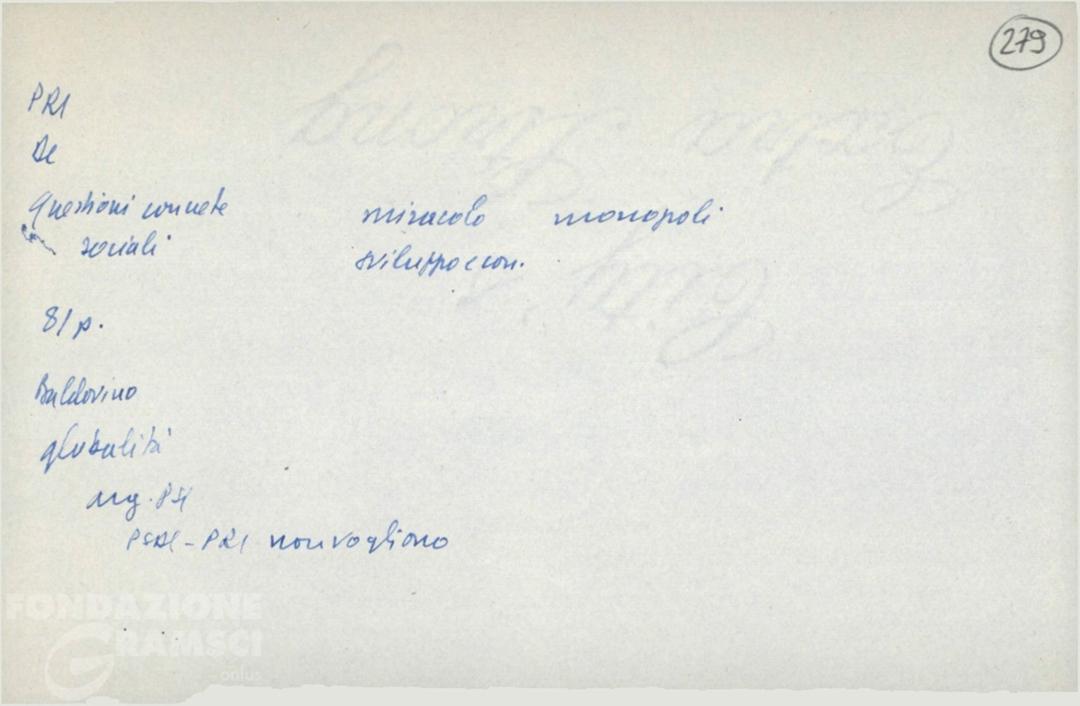 279
PRI
DC
Questioni concrete miracolo monopoli
sociali sviluppo econ.
81 p.
Baldovino
globalità
arg. PSI
PSDI - PRI non vogliono
Extra Strong
City's
FONDAZIONE
GRAMSCI
onlus